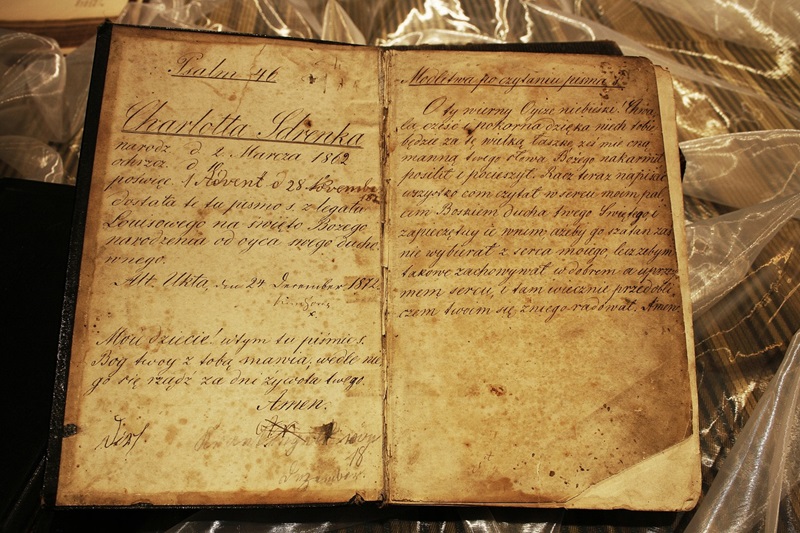 Psalm 46
Charlotta Sdrenka
narodz. d. 2. Marca 1862
ochrzc. d.
poświęc. 1. Advent d 28. Novembr
dostała te tu pismo s. z legatu
Louisowego na święto Bożego
narodzenia od oyca swego ducho
wnego.
Alt. Ukta, den 24. December 1872.
Moie dziecie! w tym tu piśmie s.
Bog twoy z tobą mawia, wedle nie
go się rządz za dni żywota twego.
Amen.
Modlitwa po czytaniu pisma S.
O ty wierny Oycze niebieski! Chwa
ła, cześć i pokorna dzięka niech tobie
będzie za tę walką łaskę, żeś mię oną
manną twego słowa Bożego nakarmił
posilił i pocieszył. Racz teraz napisać
wszystko com czytał w sercu moim pal
cem Boskiem ducha twego Swiętego, i
zapieczętuy ie w niem, ażeby go szatan zaś
nie wybierał z serca moiego, lecz żebym
takowe zachowywał w dobrem a uprzey
mem sercu, i tam wiecznie przed obli
czem twoiem się z niego radował. Amen.